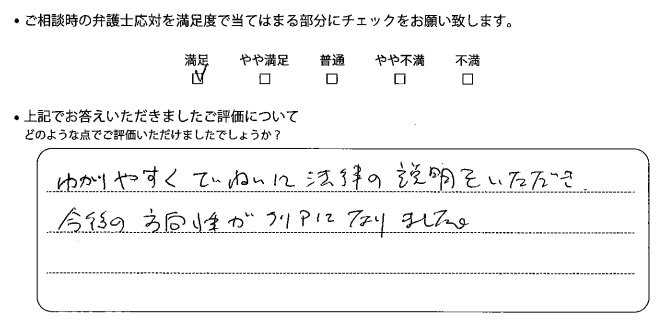 • ご相談時の弁護士応対を満足度で当てはまる部分にチェックをお願い致します。
満足 やや満足 普通 やや不満 不満
• 上記でお答えいただきましたご評価について
どのような点でご評価いただけましたでしょうか？
わかりやすくていねいに法律の説明をいただき
今後の方向性がクリアになりました。